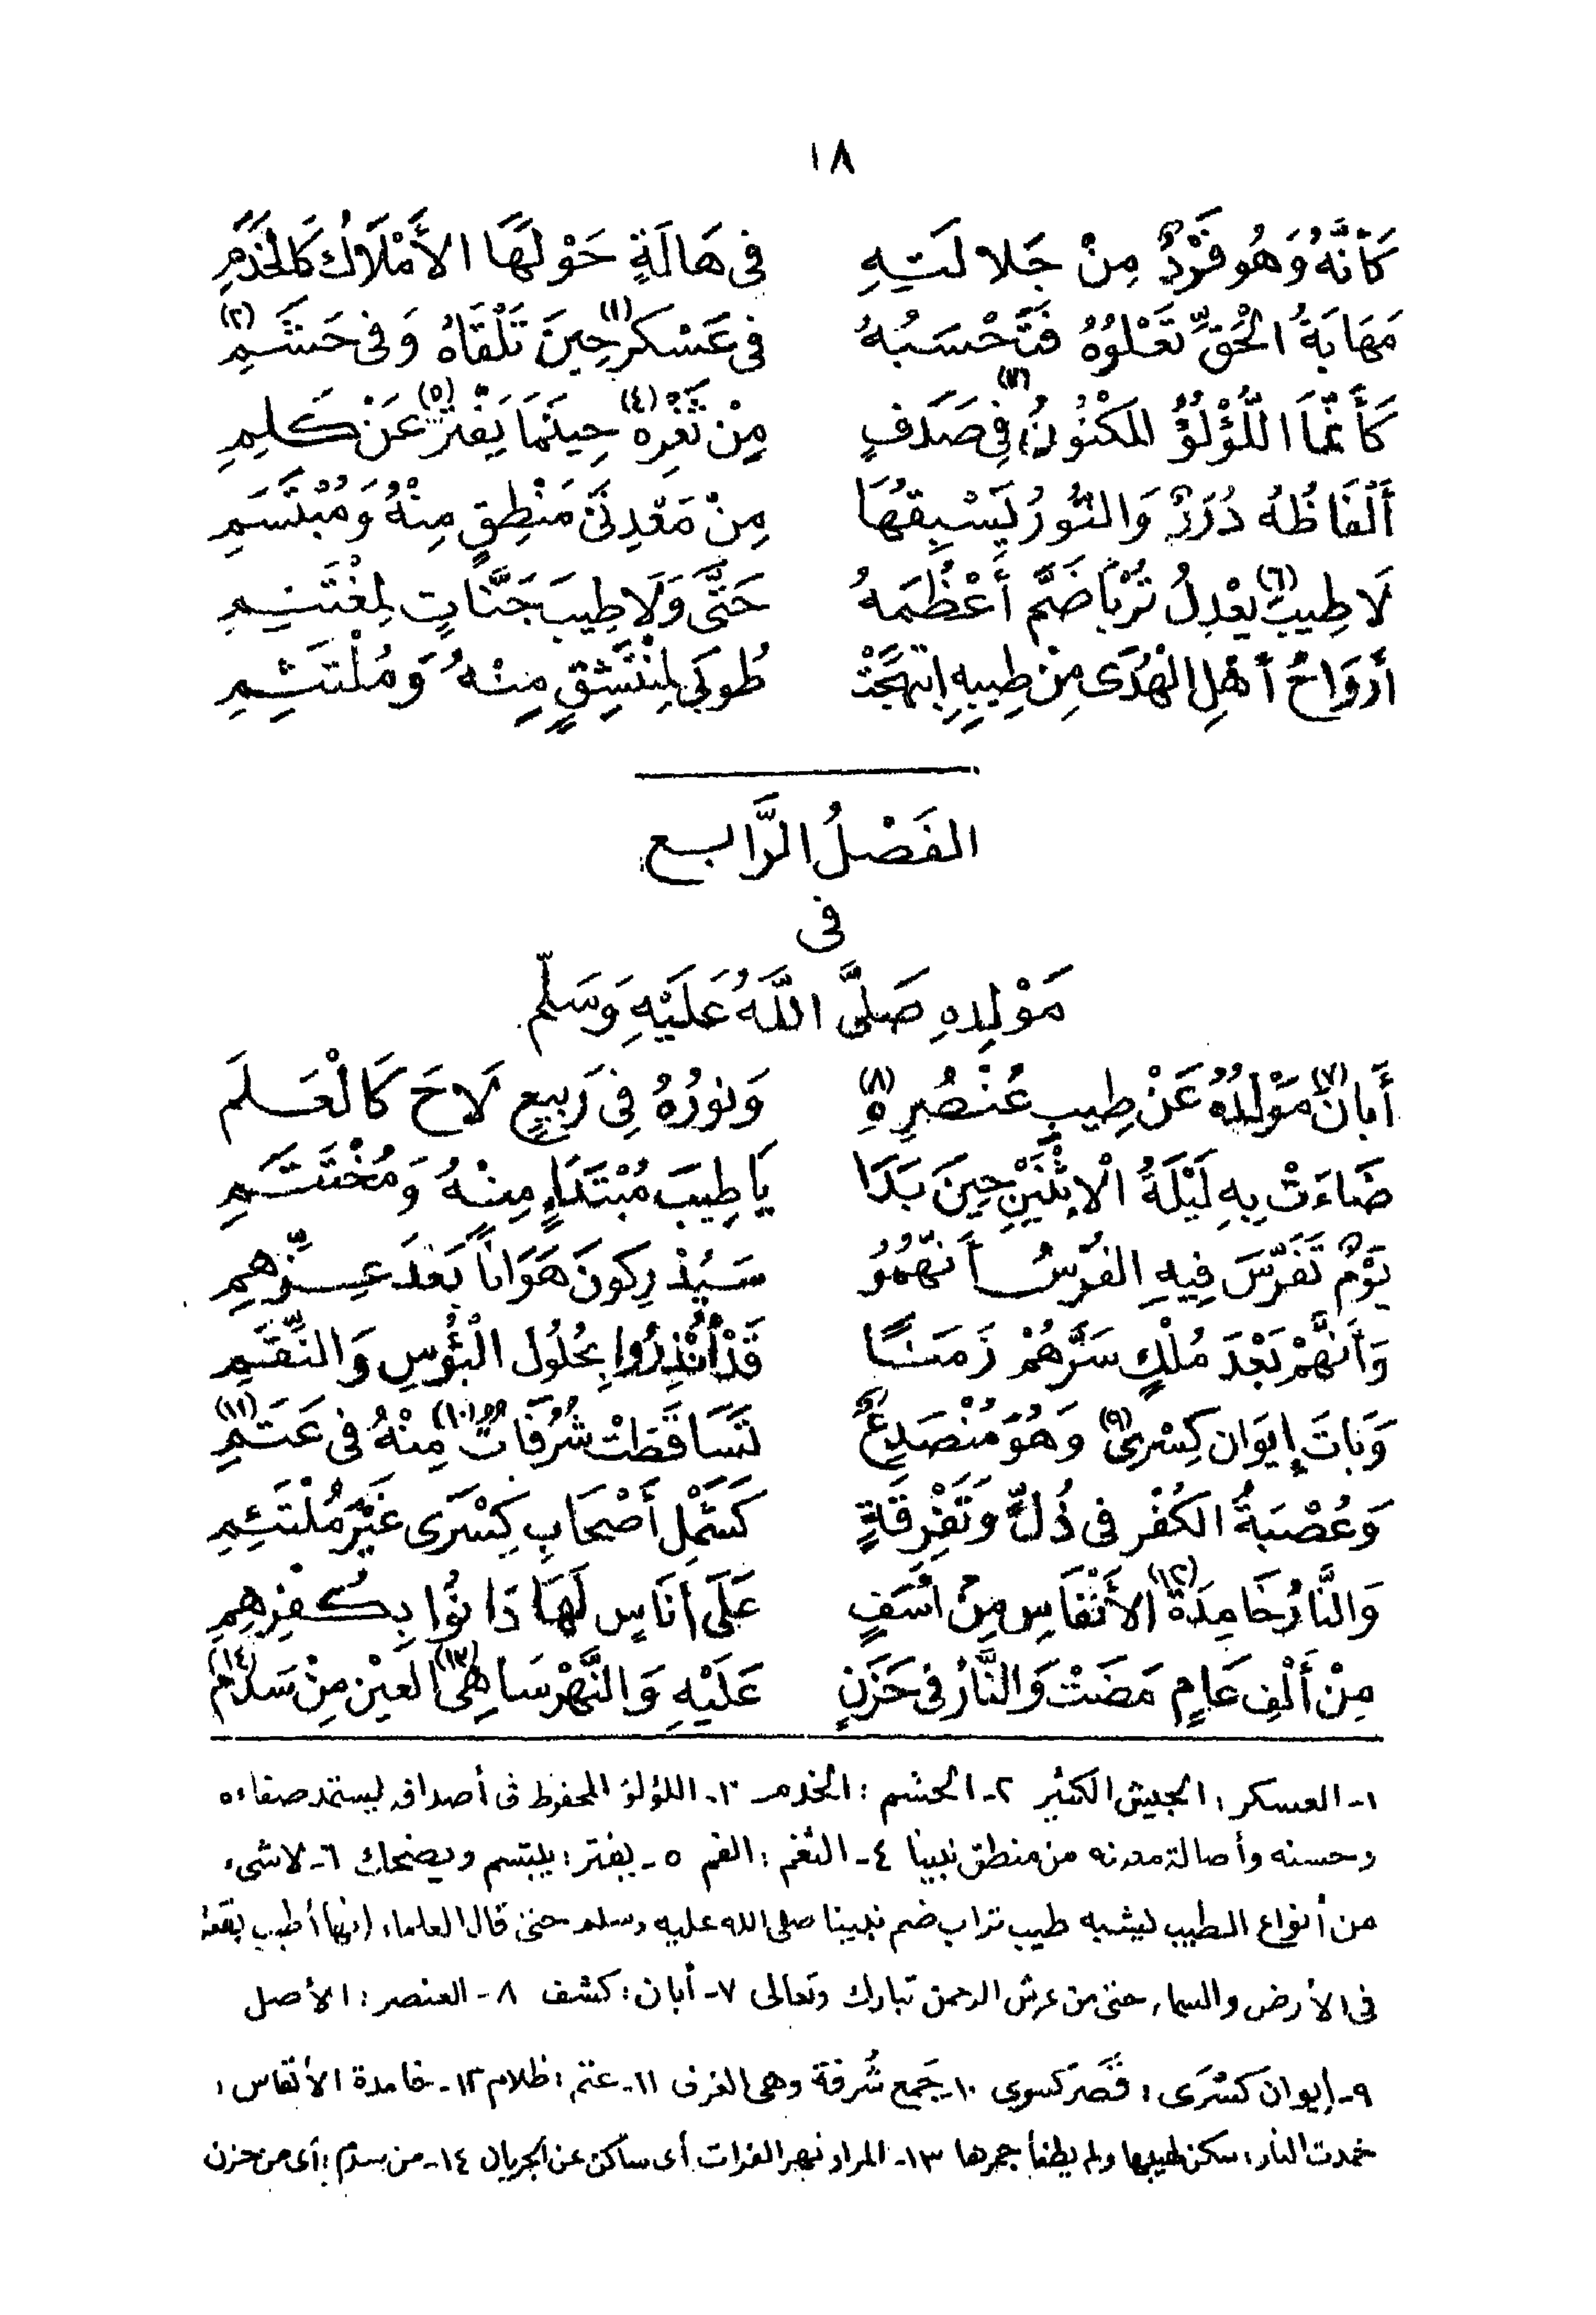 ١٨
كَأَنَّهُ وَهُو فَرْدٌ مِنْ جَلالَتِهِ فى هَالَةٍ حَوْلَهَا الأَمْلَاكُ كَالخَدَمِ
مَهَابَةُ الْحَقِّ تَعْلُوُهُ فَتَحْسَبُهُ فى عَسْكر(١) حِينَ تَلْقَاهُ وَفى حَشَمِ(٢)
كَأَنَّمَا اللُّؤْلُؤُ المَكْنُونُ(٣) فِى صَدَفٍ مِنْ ثَغْرِهِ(٤) حِينَمَا يَفْتَرُّ(٥) عَنْ كَلِمِ
أَلْفَاظُهُ دُرَرٌ وَالنُّورُ يَسْبِقُهَا مِنْ مَعْدِنَىْ مَنْطِقٍ مِنْهُ وَمُبْتَسَمِ
لَا طِيبَ(٦) يَعْدِلُ تُرْبًا ضَمَّ أَعْظُمَهُ حَتَّى وَلَا طِيبَ جَنَّاتٍ لِمغْتَنِمِ
أَرْوَاحُ أَهْلِ الْهُدَى مِنْ طِيبِهِ ابْتَهَجَتْ طُوبَى لِمُنْتَشِقٍ مِنْهُ وَمُلْتَثِمِ
الفَصْلُ الرَّابع
فى
مَوْلِدِهِ صَلَّى اللَّهُ عَلَيْهِ وَسَلَّم
أَبَانَ(٧) مَوْلِدُهُ عَنْ طِيبِ عُنْصُرِهِ(٨) وَنورُهُ فِى رَبِيعٍ لَاحَ كَالْعَلَمَ
ضَاءَتْ بِهِ لَيْلَةُ الْإِثْنَيْنِ حِينَ بَدَا يَا طِيبَ مُبْتَدَاءٍ مِنْهُ وَمُخْتَتَمِ
يَوْمٌ تَفَرَّسَ فِيهِ الفُرْسُ أَنَّهُمُوُ سَيُدْرِكونَ هَوَاناً بَعْدَ عِزِّهِمِ
وَأَنَّهُمْ بَعْدَ مُلْكٍ سَرَّهُمْ زَمَنًا قَدْ أُنْذِرُوا بِحُلُول الْبُؤْسِ وَالنِّقَمِ
وَبَاتَ إِيوَان كِسْرى(٩) وَهُوَ مُنْصَدِعٌ تَسَاقَطَتْ شُرُفَاتٌ(١٠) مِنْهُ فى عَتَمِ(١١)
وَعُصْبَةُ الكُفْر فى ذُلٍّ وَتَفْرِقَةٍ كَشَمْلِ أَصْحَابِ كِسْرَى غَيْرَ مُلْتَئِمِ
وَالنَّارُ خَامِدَةُ(١٢) الأَنْفَاسِ مِنْ أَسَفٍ عَلَى أنَاسٍ لَهَا دَانُوا بِكُفْرِهِمِ
مِنْ أَلْفِ عَامٍ مَضَتْ وَالنَّارُ فى حَزَنٍ عَلَيْهِ وَالنَّهْرُ سَاهِى(١٣) العيْن مِنْ سَدَمِ(١٤)
١- العسكر: الجيش الكثير ٢- الحشم: الخدم ٣- اللؤلؤ المحفوظ فى أصدافه ليستمد صفاءه
وحسنه وأصالة معدنه من منطق نبينا ٤- الثغر: الفم ٥- يفتر: يبتسم ويضحك ٦- لا شىء
من أنواع الطيب ليشبه طيب تراب ضم نبينا صلى الله عليه وسلم حتى قال العلماء إنها أطيب بقعة
فى الأرض والسماء حتى من عرش الرحمن تبارك وتعالى ٧- أبان: كشف ٨- العنصر: الأصل
٩- إيوان كسْرَى: قَصْر كسرى ١٠- جَمع شُرفة وهى الغرف ١١- عتم: ظلام ١٢- خامدة الأنفاس:
خمدت النار: سكن لهيبها ولم يطفأ جمرها ١٣- المراد نهر الفرات أى ساكن عن الجريان ١٤- من سدم: أى من حزن